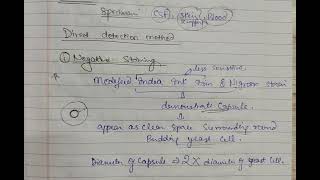 Specimen CSF, Spin, Blood
Direct detection method
① Negative Staining
less sensitive
Modified India Ink stain & Nigrosin stain
demonstrate Capsule.
appear as clear space surrounding round
Budding yeast cell.
Diameter of Capsule ⇒ 2X diameter of yeast cell.